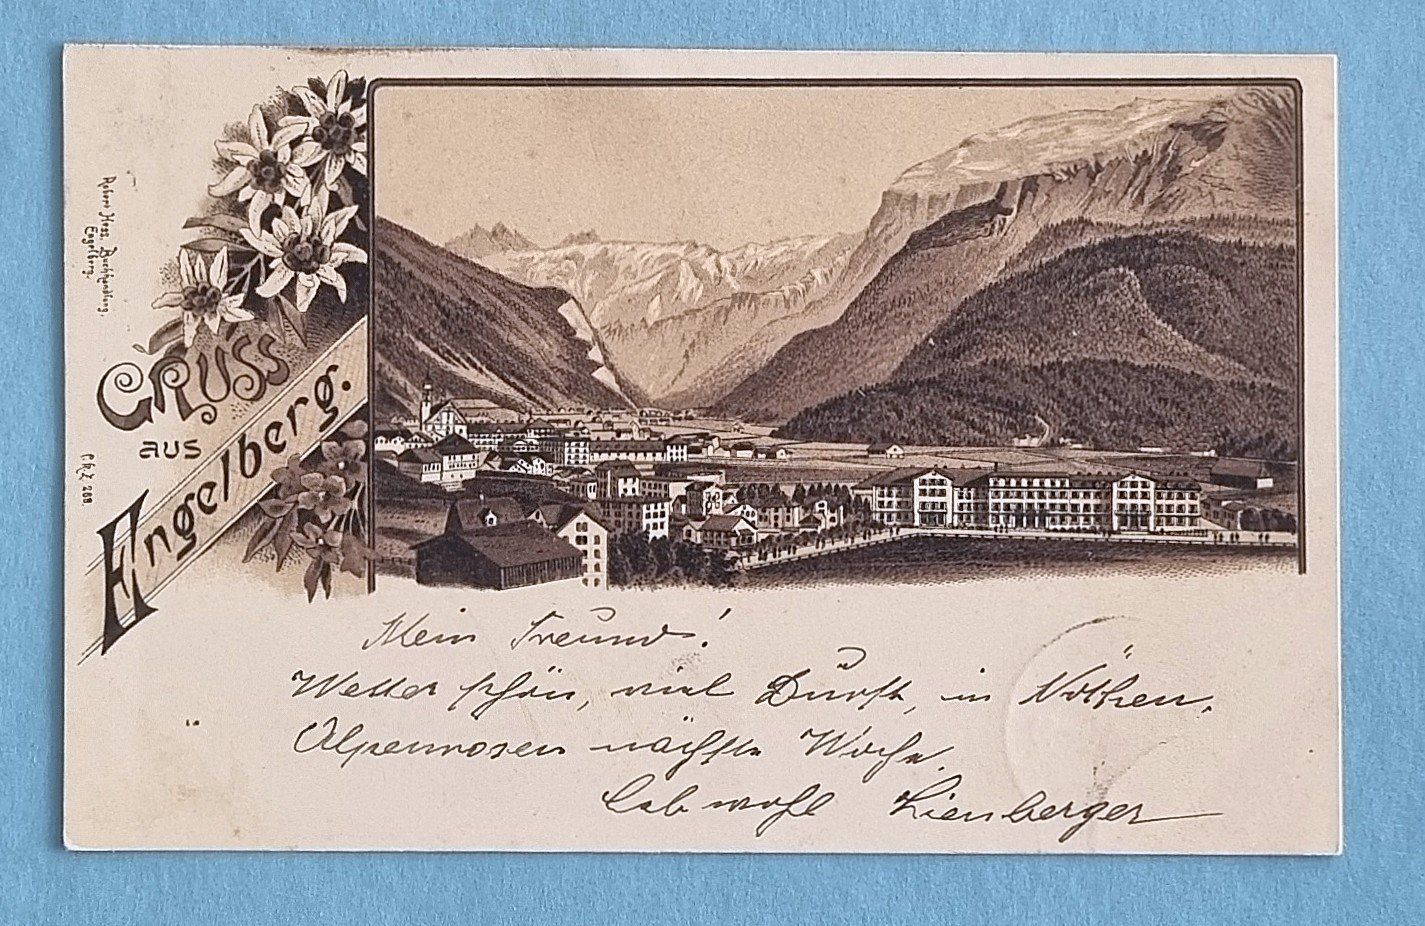 Robert Hess, Buchhandlung,
Engelberg.
GRUSS
aus
Engelberg.
268.
Mein Freund!
Wetter schön, viel Durst, in Nöthen,
Alpenrosen nächste Woche.
Leb wohl Lienberger